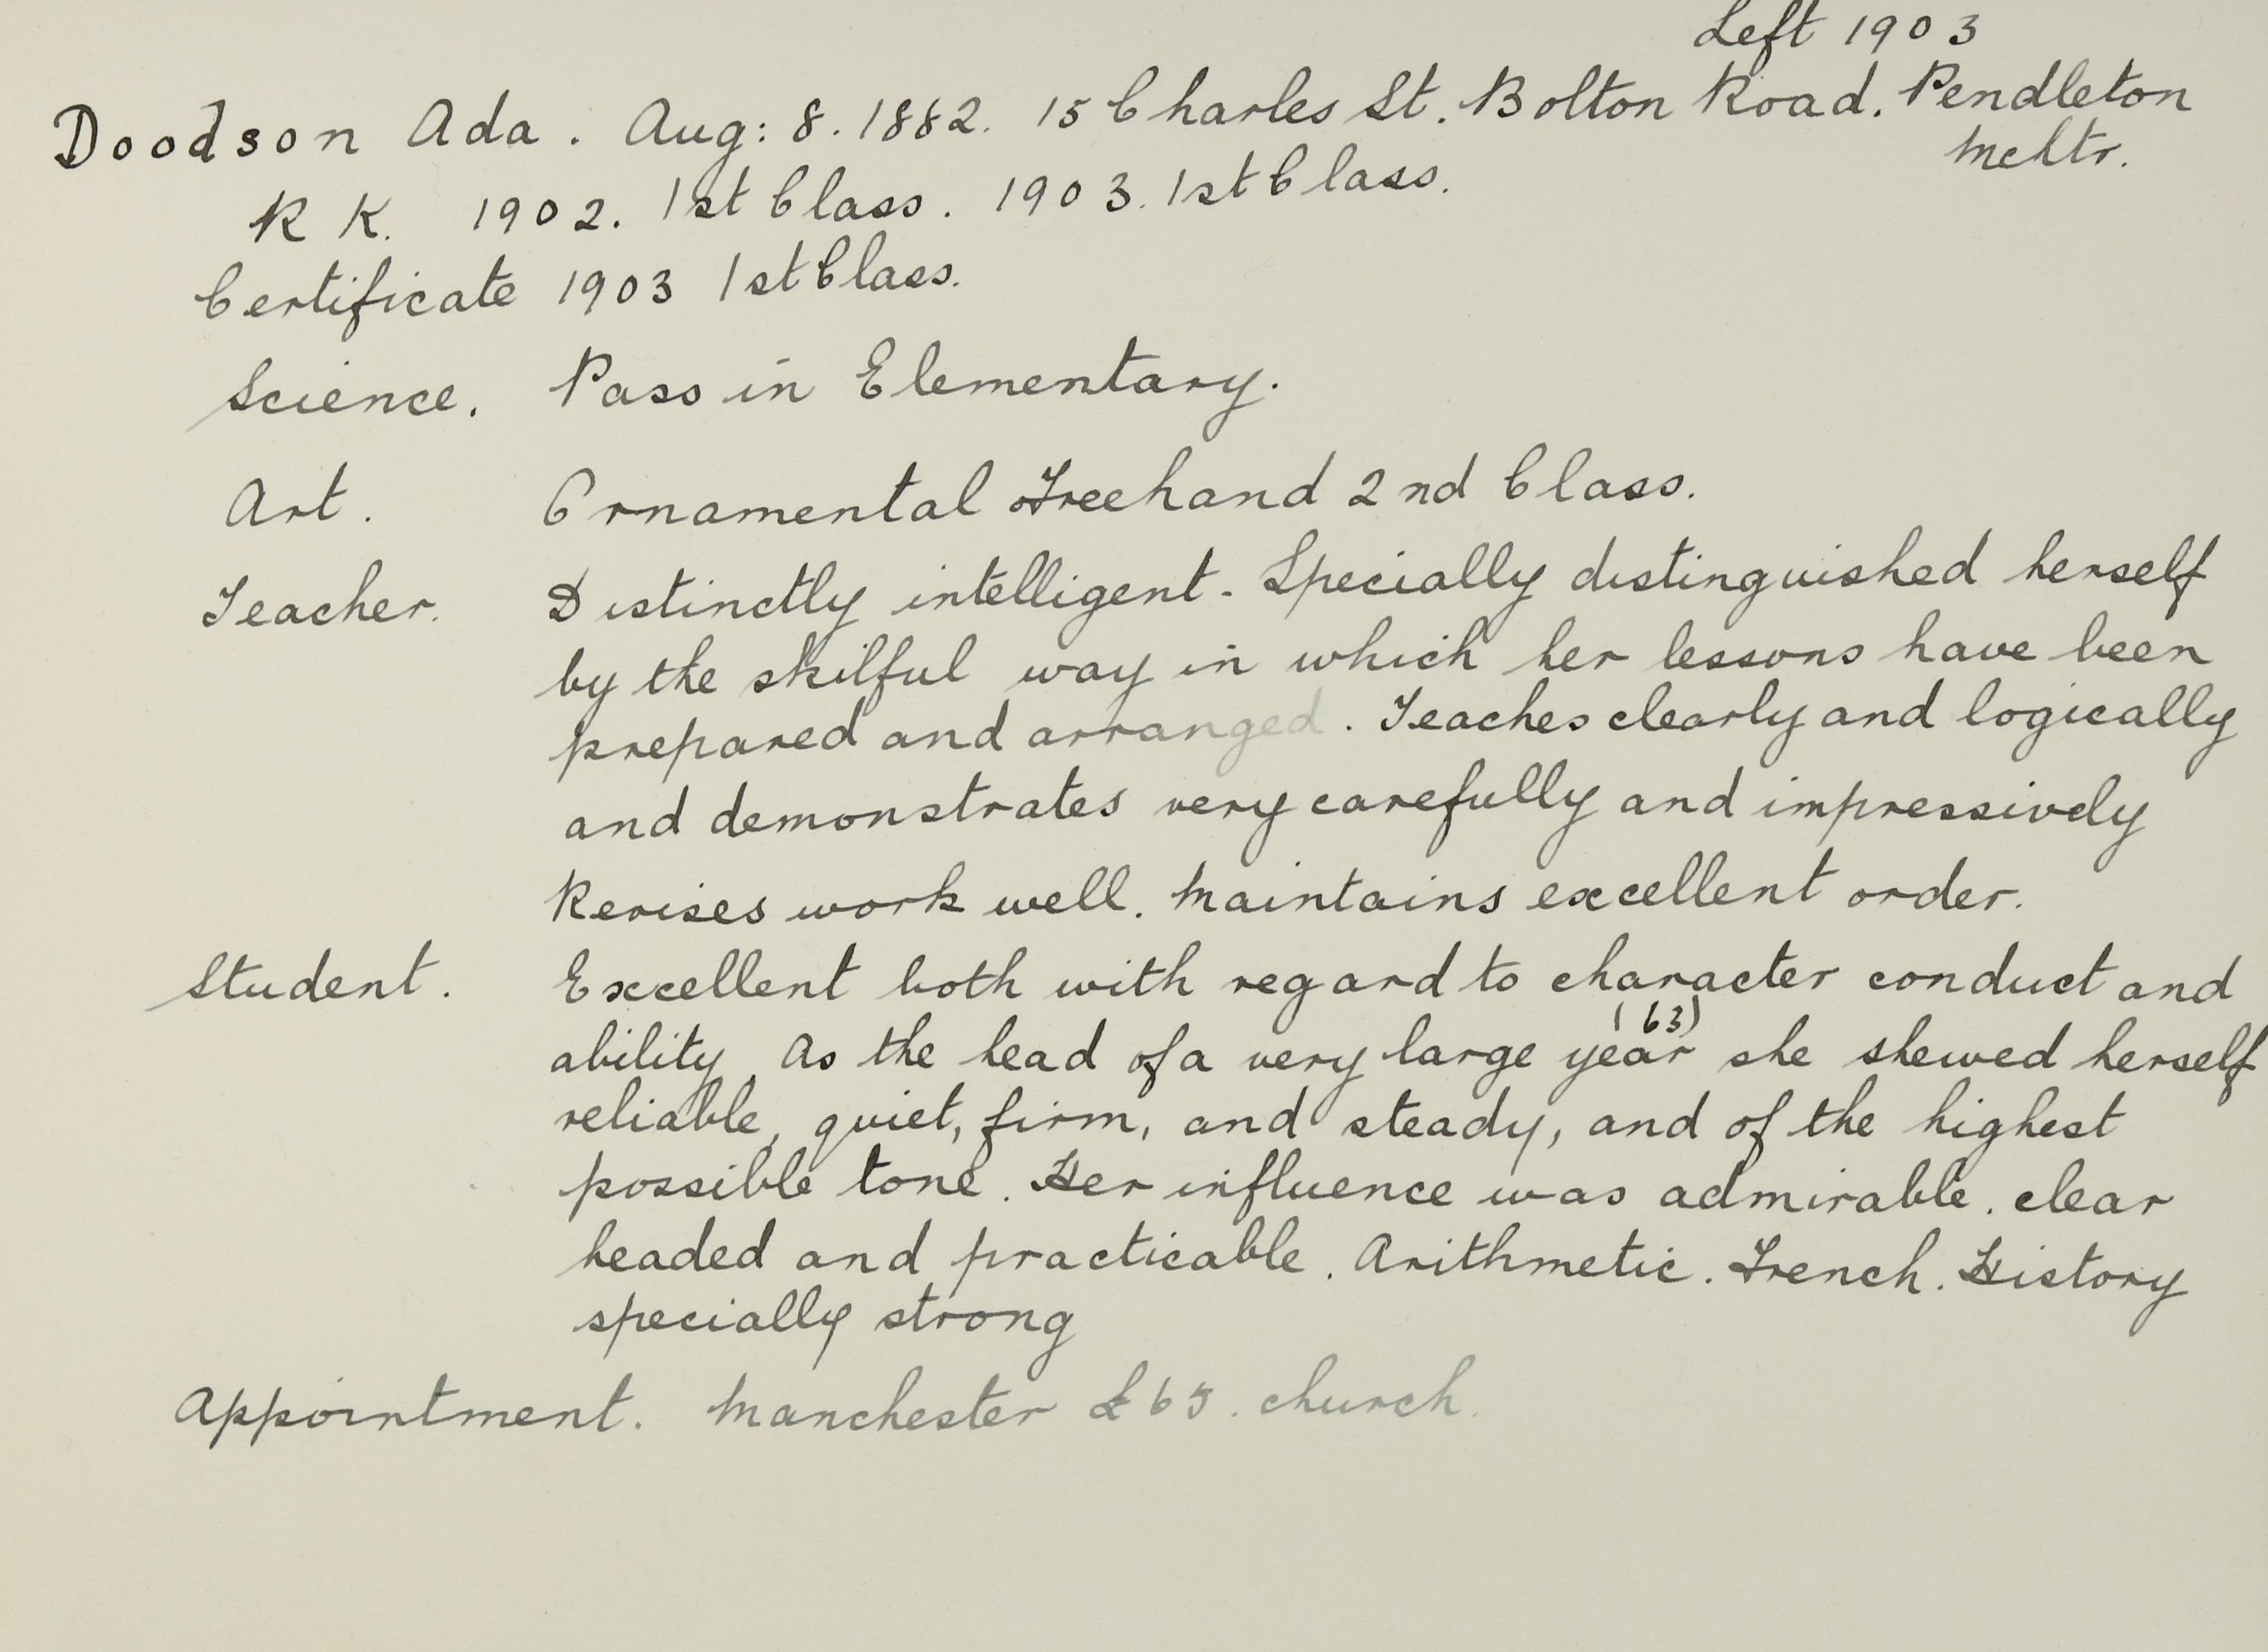 Left 1903
Doodson Ada. Aug: 8. 1882. 15 Charles St. Bolton Road. Pendleton
Mchtr.
R K. 1902. 1st Class. 1903. 1st Class.
Certificate 1903 1st Class.
Science. Pass in Elementary.
Art. Ornamental Freehand 2nd Class.
Teacher. Distinctly intelligent. Specially distinguished herself
by the skilful way in which her lessons have been
prepared and arranged. Teaches clearly and logically
and demonstrates very carefully and impressively
Revises work well. Maintains excellent order.
Student. Excellent both with regard to character conduct and
(63)
ability. As the head of a very large year she shewed herself
reliable, quiet, firm, and steady, and of the highest
possible tone. Her influence was admirable. clear
headed and practicable. Arithmetic. French. History
specially strong
Appointment. Manchester £65. church.